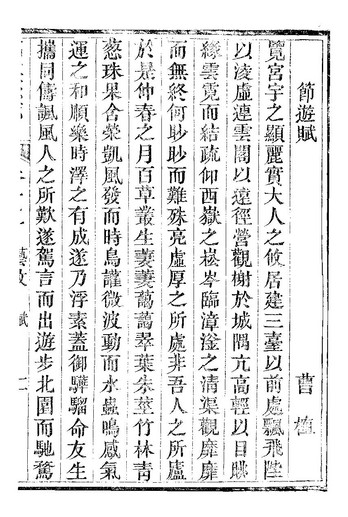 節遊賦
曹植
覽宮宇之顯麗實大人之攸居建三臺以前處飄飛陛
以淩虛連雲閣以遠徑營觀榭於城隅亢高輕以目眺
緣雲霓而結疏仰西嶽之崧岑臨漳滏之清渠觀靡靡
而無終何眇眇而難殊亮虛厚之所處非吾人之所廬
於是仲春之月百草叢生萋萋藹藹翠葉朱莖竹林青
葱珠果含榮凱風發而時鳥讙微波動而水蟲鳴感氣
運之和順樂時澤之有成遂乃浮素蓋御驊騮命友生
攜同儔諷風人之所歎遂駕言而出遊步北園而馳騖
藝文
賦